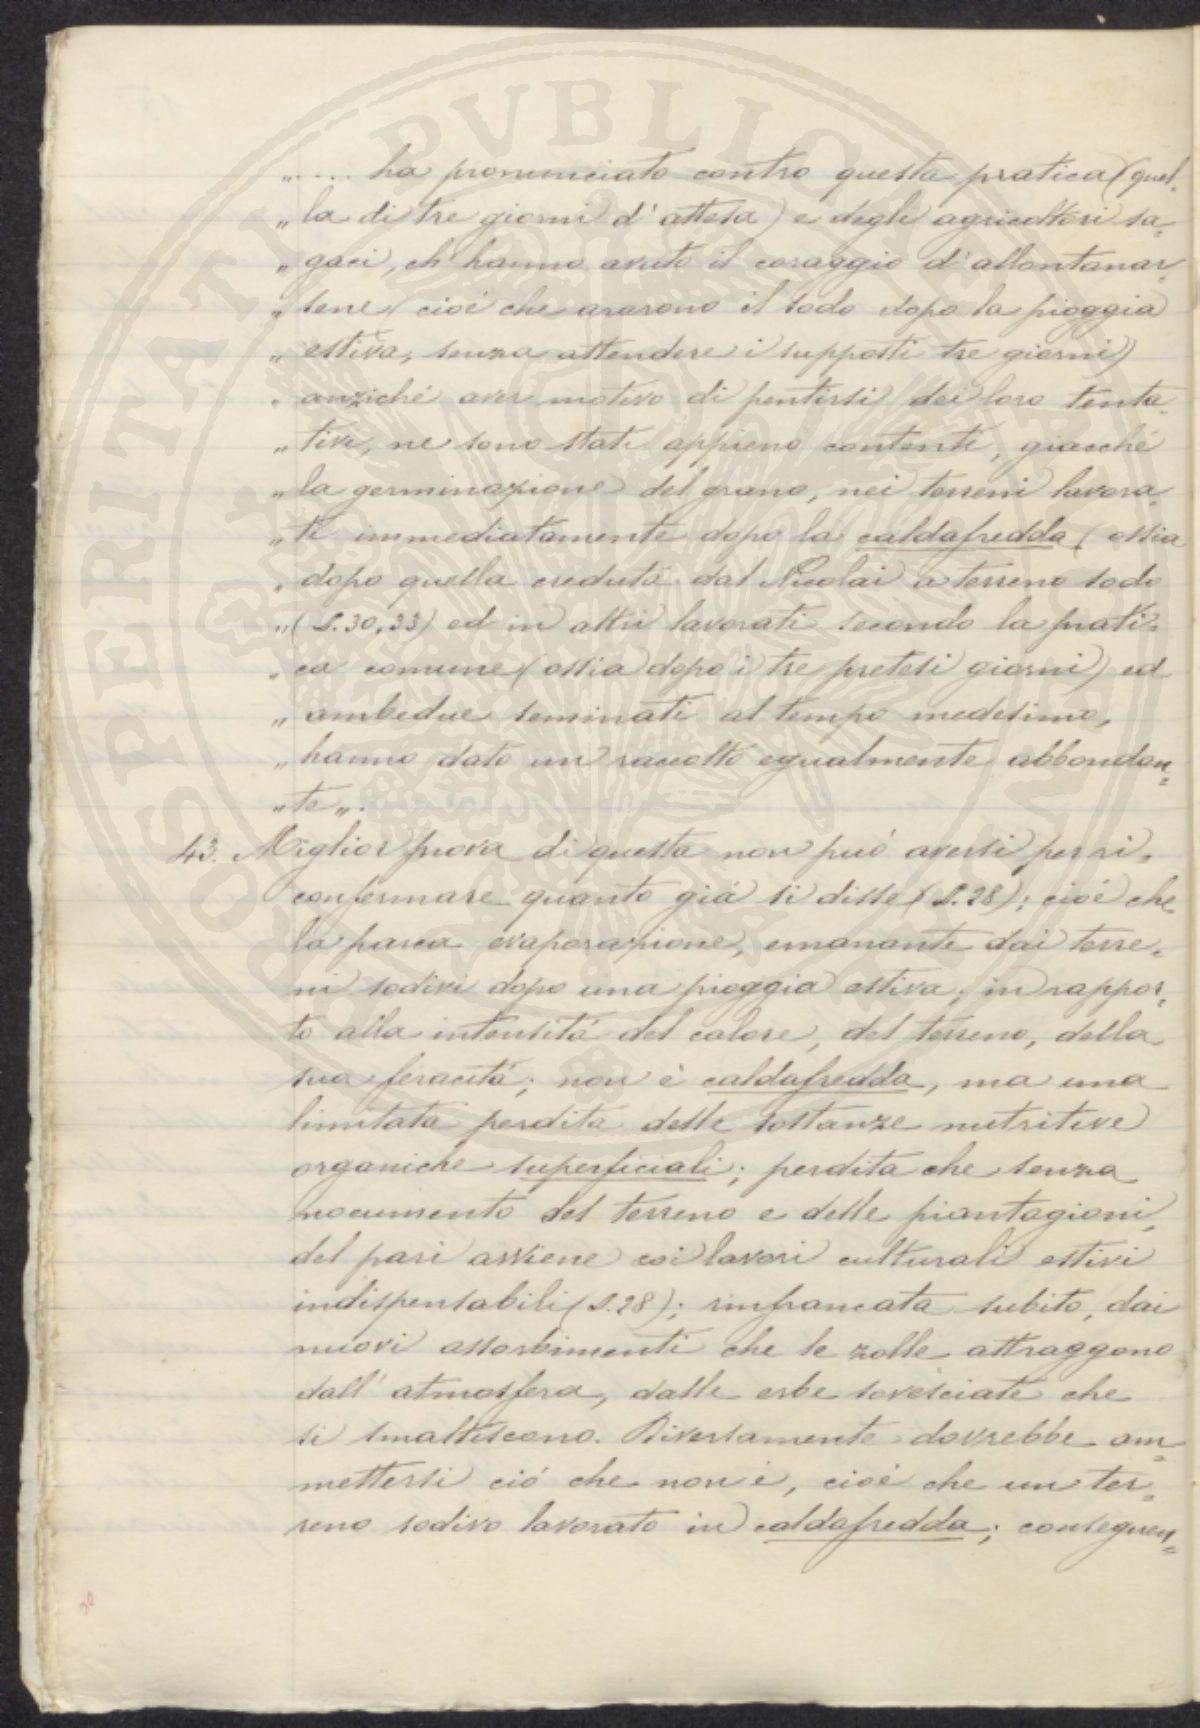 „.... ha pronunciato contro questa pratica (quel-
„la di tre giorni d'attesa) e degli agricoltori sa-
„gaci, ch hanno avuto il coraggio d'allontanar-
„sene (cioé che ararono il sodo dopo la pioggia
„estiva, senza attendere i supposti tre giorni)
„anziché aver motivo di pentirsi dei loro tenta-
„tivi, ne sono stati appieno contenti, giacché
„la germinazione del grano, nei terreni lavora-
„ti immediatamente dopo la caldafredda (ossia
„dopo quella creduta dal Nicolai a terreno sodo
„(§. 30, 33) ed in altri lavorati secondo la prati-
„ca comune (ossia dopo i tre pretesi giorni) ed
„ambedue seminati al tempo medesimo,
„hanno dato un raccolto egualmente abbondan-
„te„.
43. Miglior prova di questa non può aversi per ri-
confermare quanto giá si disse (§. 28); cioé che
la parca evaporazione, emanante dai terre-
ni sodivi dopo una pioggia estiva, in rappor-
to alla intensitá del calore, del terreno, della
sua feracitá; non è caldafredda, ma una
limitata perdita delle sostanze nutritive
organiche superficiali; perdita che senza
nocumento del terreno e delle piantagioni,
del pari avviene coi lavori culturali estivi
indispensabili (§. 28); rinfrancata subito, dai
nuovi assorbimenti che le zolle attraggono
dall'atmosfera, dalle erbe sovesciate che
si smaltiscono. Diversamente dovrebbe am-
mettersi ció che non é, cioé che un ter-
reno sodivo lavorato in caldafredda; conseguen-
30
PROSPERITATI PVBLICAE